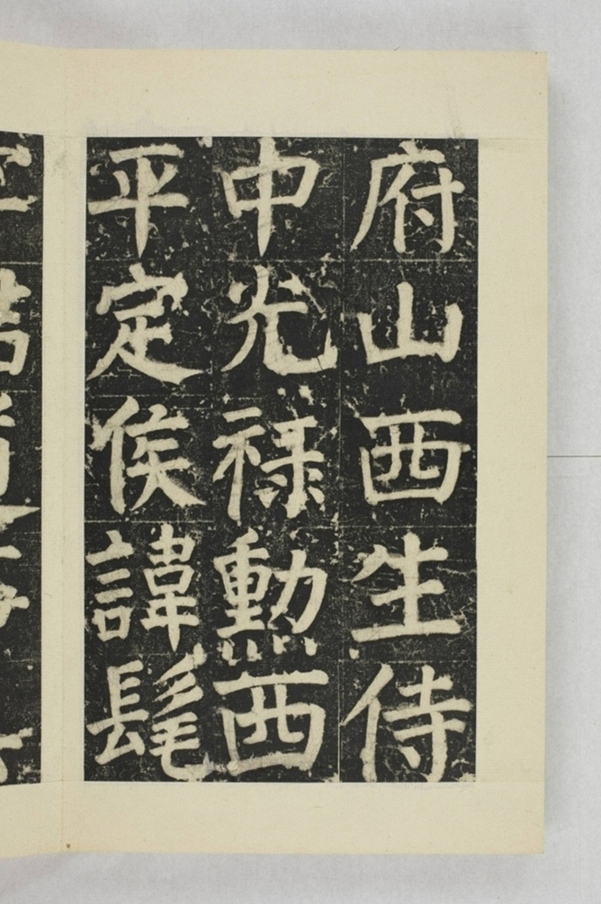 府山西生侍
中光禄勳西
平定侯諱髦